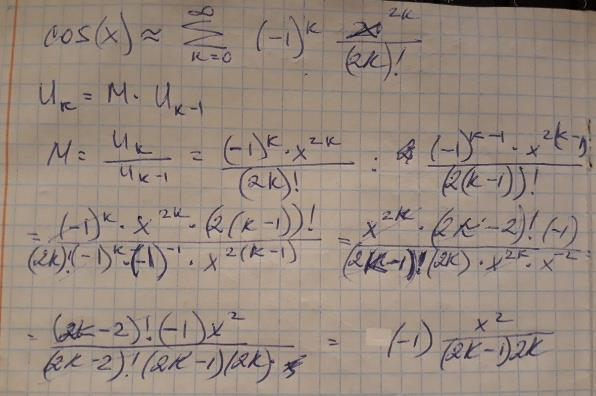 cos(x) ≈ ∑_{k=0}^{∞} (-1)^k x^{2k} / (2k)!
U_k = M · U_{k-1}
M = U_k / U_{k-1} = (-1)^k · x^{2k} / (2k)! : (-1)^{k-1} · x^{2(k-1)} / (2(k-1))!
= (-1)^k · x^{2k} · (2(k-1))! / (2k)! · (-1)^k · (-1)^{-1} · x^{2(k-1)} = x^{2k} · (2k-2)! (-1) / (2k-1)! (2k) · x^{2k} · x^{-2}
= (2k-2)! (-1) x^2 / (2k-2)! (2k-1) (2k) = (-1) x^2 / (2k-1)2k